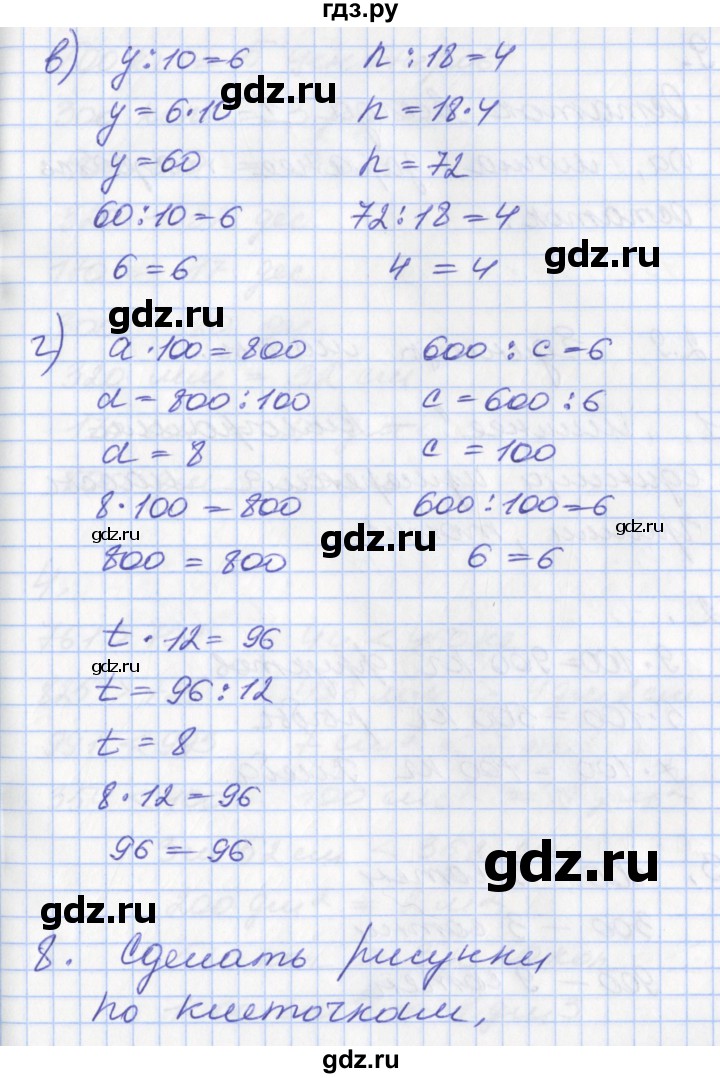 гдз.ру
в) y : 10 = 6
y = 6 · 10
y = 60
60 : 10 = 6
6 = 6
n : 18 = 4
n = 18 · 4
n = 72
72 : 18 = 4
4 = 4
gdz.ru
gdz.ru
gdz.ru
г) a · 100 = 800
d = 800 : 100
d = 8
8 · 100 = 800
800 = 800
600 : c = 6
c = 600 : 6
c = 100
600 : 100 = 6
6 = 6
gdz.ru
gdz.ru
gdz.ru
t · 12 = 96
t = 96 : 12
t = 8
8 · 12 = 96
96 = 96
gdz.ru
gdz.ru
gdz.ru
8. Сделать рисунки
по клеточкам,
gdz.ru